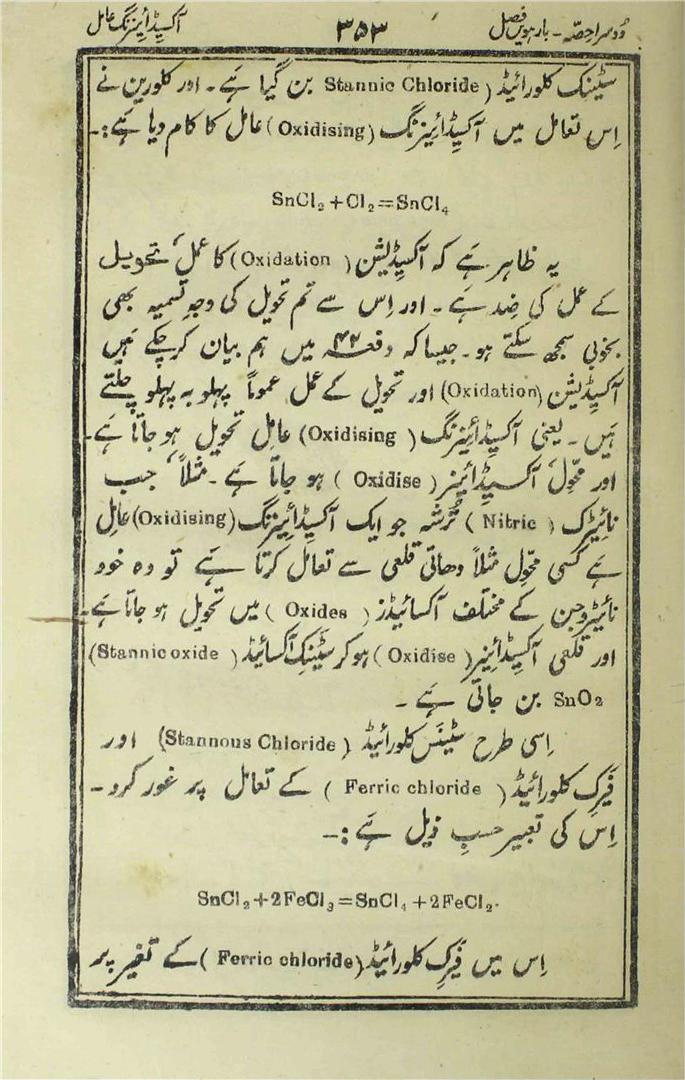 دوسرا حصّہ - بارہویں فصل ۳۵۳ آکسِڈائیزنگ عامل
سٹینک کلورائیڈ (Stannic Chloride) بن گیا ہے - اور کلورین نے
اِس تعامل میں آکسِڈائیزنگ (Oxidising) عامل کا کام دیا ہے :-
SnCl₂ + Cl₂ = SnCl₄
یہ ظاہر ہے کہ آکسِڈیشن (Oxidation) کا عمل، تحویل
کے عمل کی ضِد ہے - اور اِس سے تم تحویل کی وجہِ تسمیہ بھی
بخوبی سمجھ سکتے ہو - جیسا کہ دفعہ ۴۲ میں ہم بیان کر چکے ہیں
آکسِڈیشن (Oxidation) اور تحویل کے عمل عموماً پہلو بہ پہلو چلتے
ہیں - یعنی آکسِڈائیزنگ (Oxidising) عامل تحویل ہو جاتا ہے -
اور محوِّل، آکسِڈائیز (Oxidise) ہو جاتا ہے - مثلاً، جب
نائیٹرک (Nitric) تُرشہ جو ایک آکسِڈائیزنگ (Oxidising) عامل
ہے کسی محوِّل مثلاً دھاتی قلعی سے تعامل کرتا ہے تو وہ خود
نائیٹروجن کے مختلف آکسائیڈز (Oxides) میں تحویل ہو جاتا ہے -
اور قلعی آکسِڈائیز (Oxidise) ہو کر سٹینِک آکسائیڈ (Stannic oxide)
SnO₂ بن جاتی ہے -
اِسی طرح سٹینَس کلورائیڈ (Stannous Chloride) اور
فیَرِک کلورائیڈ (Ferric chloride) کے تعامل پر غور کرو -
اِس کی تعبیر حسبِ ذیل ہے :-
SnCl₂ + 2FeCl₃ = SnCl₄ + 2FeCl₂.
اِس میں فیَرِک کلورائیڈ (Ferric chloride) کے تغیّر پر